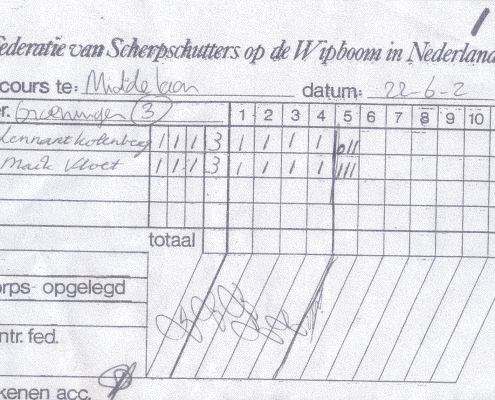 federatie van Scherpschutters op de Wipboom in Nederland
cours te: Middelaan datum: 22-6-2
er. Groeningen (3) 1 2 3 4 5 6 7 8 9 10
Lennart 1 1 1 3 1 1 1 1 011
Maik Kloet 1 1 1 3 1 1 1 1 111
totaal
rps- opgelegd
ntr. fed.
kenen acc.